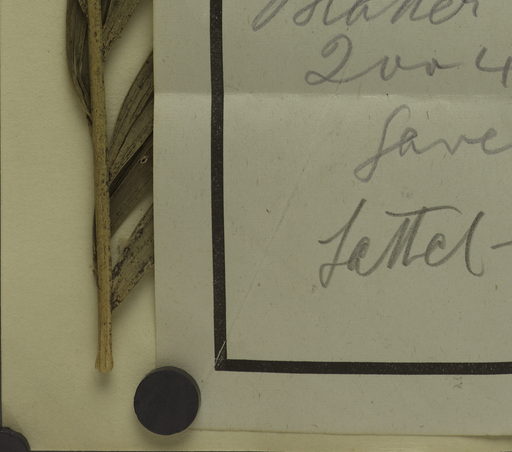 Blätter
2004
Gave
Sattel-